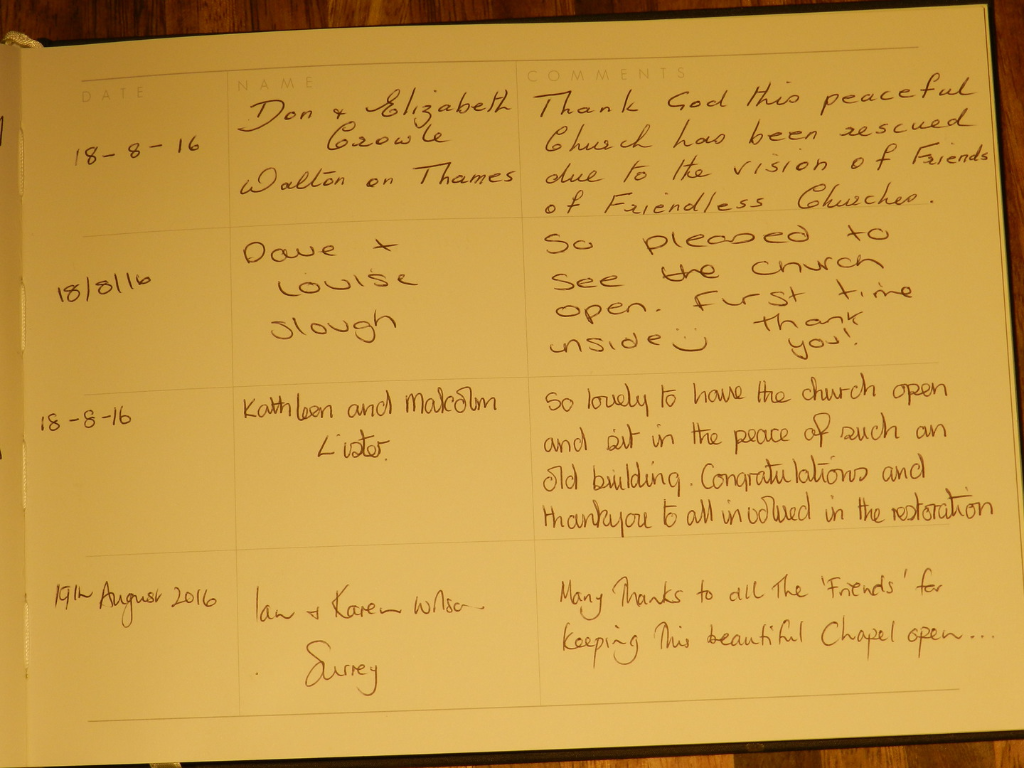 DATE NAME COMMENTS
18-8-16
Don & Elizabeth
Crowle
Walton on Thames
Thank God this peaceful
Church has been rescued
due to the vision of Friends
of Friendless Churches.
18/8/16
Dave +
Louise
Slough
So pleased to
see the church
open. First time
inside☺ Thank
you!
18-8-16
Kathleen and Malcolm
Lister.
So lovely to have the church open
and sit in the peace of such an
old building. Congratulations and
thankyou to all involved in the restoration
19th August 2016
Ian & Karen Wilson
Surrey
Many Thanks to all The 'Friends' for
keeping This beautiful Chapel open...